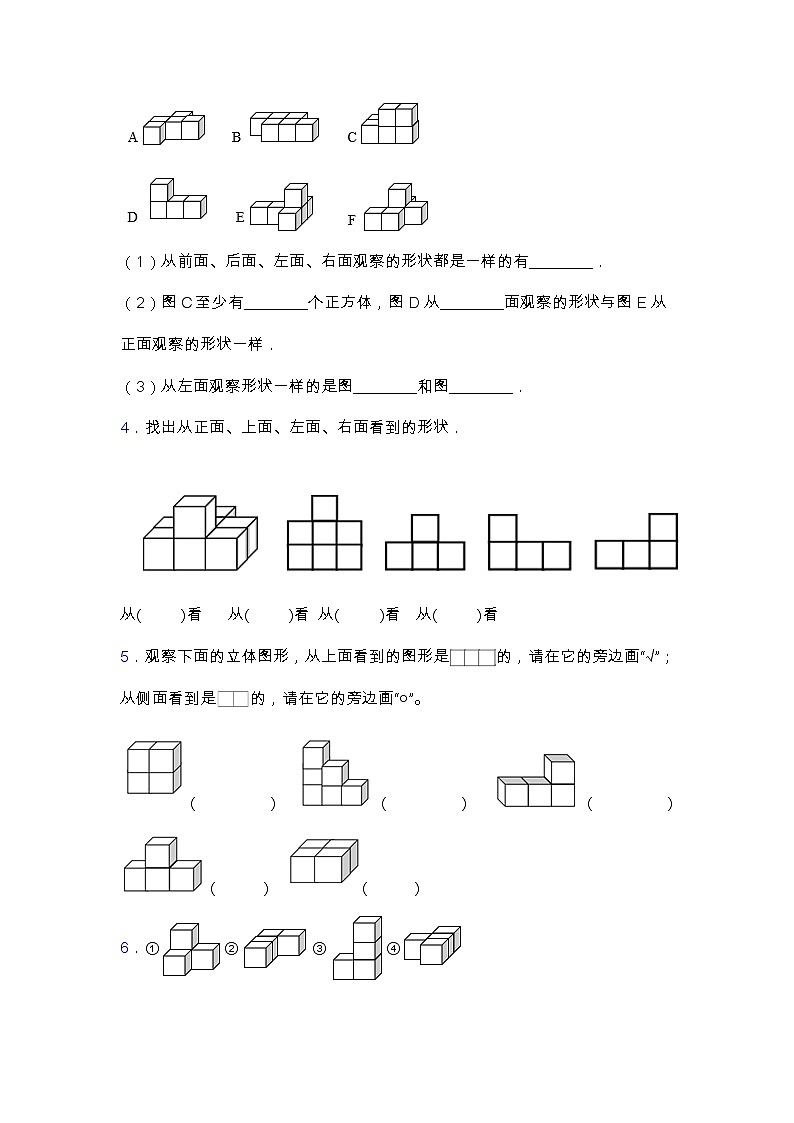 A B C
D E F
（1）从前面、后面、左面、右面观察的形状都是一样的有________．
（2）图 C 至少有________个正方体，图 D 从________面观察的形状与图 E 从
正面观察的形状一样．
（3）从左面观察形状一样的是图________和图________．
4．找出从正面、上面、左面、右面看到的形状．
从( )看 从( )看 从( )看 从( )看
5．观察下面的立体图形，从上面看到的图形是的，请在它的旁边画“√”；
从侧面看到是的，请在它的旁边画“○”。
（ ） （ ） （ ）
（ ） （ ）
6．① ② ③ ④